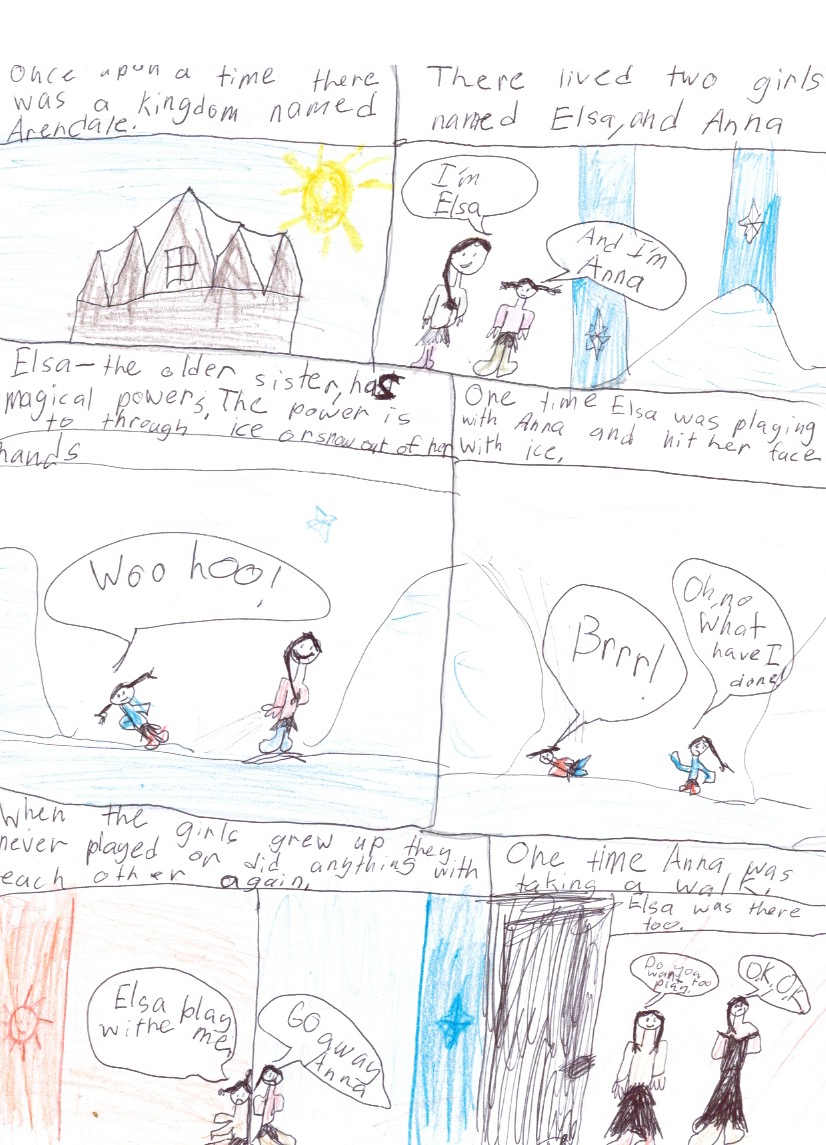 Once upon a time there
was a kingdom named
Arendale.
There lived two girls
named Elsa, and Anna
I'm
Elsa
And I'm
Anna
Elsa- the older sister, has
magical powers, The power is
to through ice or snow out of her
hands
Woo hoo!
One time Elsa was playing
with Anna and hit her face
with ice,
Brrr!
Oh, no
What
have I
done!
When the girls grew up they
never played or did anything with
each other again.
Elsa play
withe me
GO
away
Anna
One time Anna was
taking a walk,
Elsa was there
too.
Do you
want too
play,
OK, OK